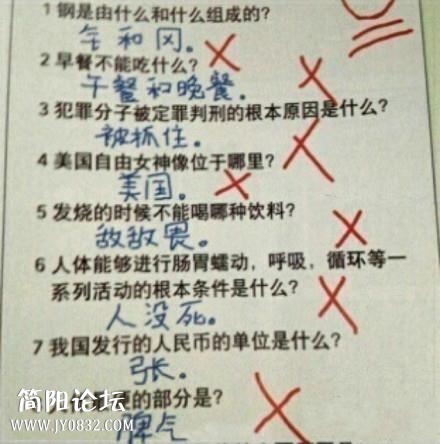 1 钢是由什么和什么组成的?
钅和冈。
2 早餐不能吃什么?
午餐和晚餐。
3 犯罪分子被定罪判刑的根本原因是什么?
被抓住。
4 美国自由女神像位于哪里?
美国。
5 发烧的时候不能喝哪种饮料?
敌敌畏。
6 人体能够进行肠胃蠕动，呼吸，循环等一
系列活动的根本条件是什么?
人没死。
7 我国发行的人民币的单位是什么?
张。
的部分是?
脾气
简阳论坛
WWW.JY0832.COM